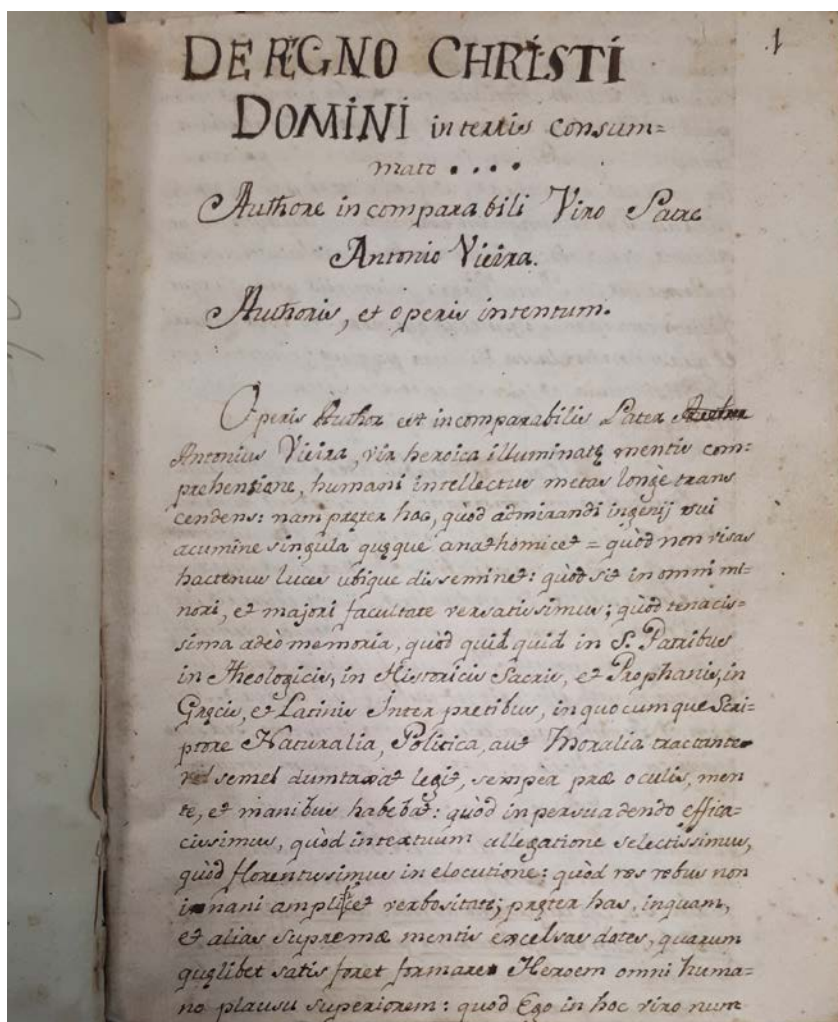 .1
DE REGNO CHRISTI
DOMINI in terris consum=
mato ....
Authore incomparabili Viro Patre
Antonio Vieira.
Authoris, et operis intentum.
Operis Author est incomparabilis Pater
Antonius Vieira, vir heroica illuminatę mentis com=
prehensione, humani intellectus metas longè trans
cendens: nam pręter hoc, quòd admirandi ingenij sui
acumine singula quęque anathomicet = quòd non visas
hactenus luces ubique disseminet: quòd sit in omni mi=
nori, et majori facultate versatissimus; quòd tenacis=
sima adeò memoria, quòd quidquid in S. Patribus
in Theologicis, in Historicis Sacris, et Prophanis, in
Gręcis, et Latinis Interpretibus, in quocumque Scri=
ptore Naturalia, Politica, aut Moralia tractante
vel semel dumtaxat legit, sempèr præ oculis, men
te, et manibus habebat: quòd in persuadendo effica=
cissimus, quòd in textuum allegatione selectissimus,
quòd florentissimus in elocutione: quòd res rebus non
inani amplificet verbositate; pręter has, inquam,
et alias supremæ mentis excelsas dotes, quarum
quęlibet satis foret formare Heroem omni huma=
no plausu superiorem: quod Ego in hoc viro num